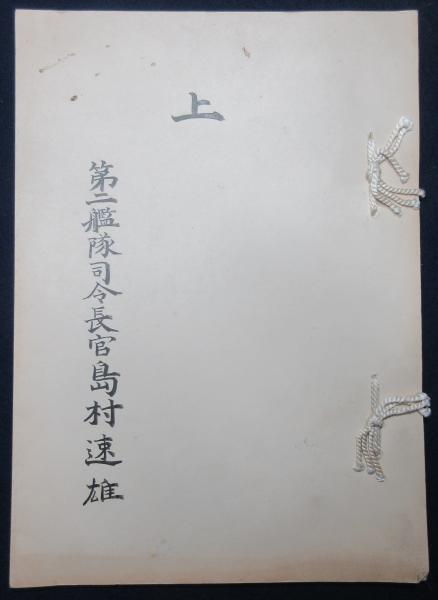 上
第二艦隊司令長官島村速雄